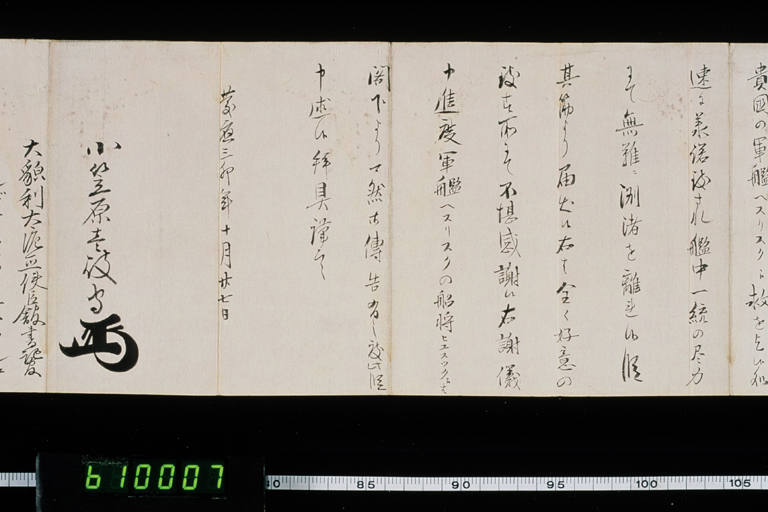 貴國の軍艦ヘスリスクに救を乞ひ
速に承諾致され艦中一統の尽力
にて無難に洲渚を離れ候段
其筋より届出候右は全く好意の
致す所にて不堪感謝候右謝儀
申進度軍艦ヘスリスクの船将
閣下より可然御傳告有之度此段
申述候拝具謹言
慶應三卯年十月廿七日
小笠原壱岐守
大貌利大泥亜使臣館書記
b10007
80 85 90 95 100 105